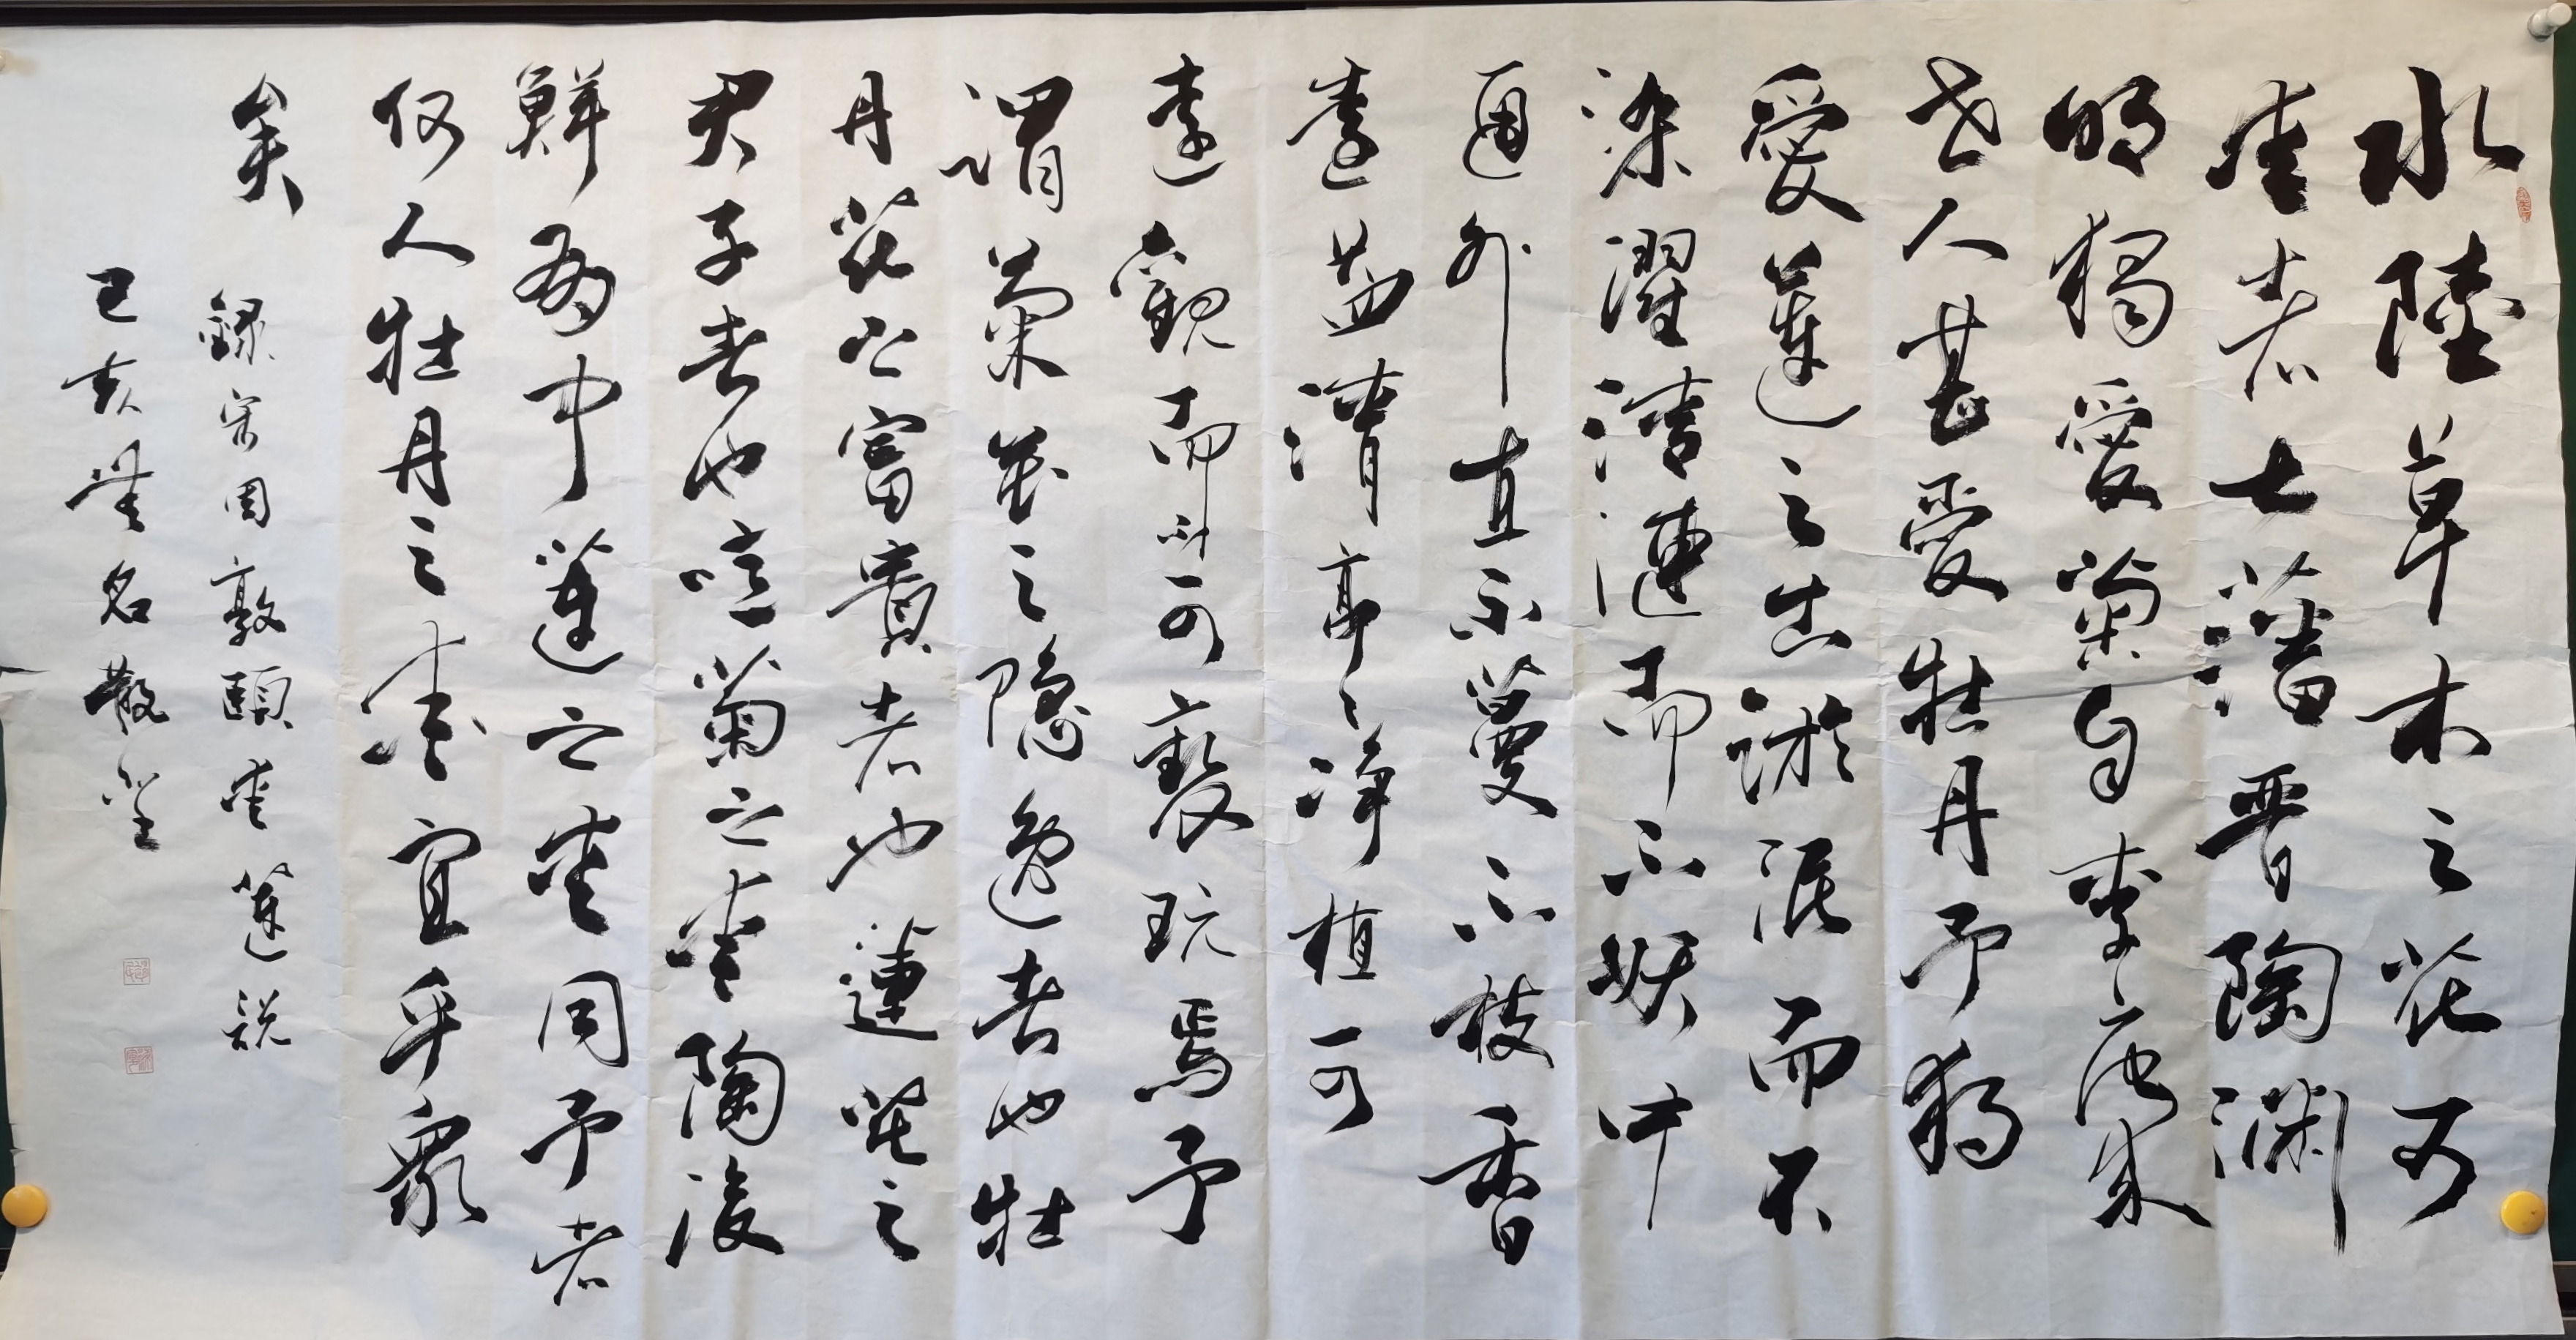 水陸草木之花可
愛者甚藩晋陶淵
明獨愛菊自李唐来
世人甚愛牡丹予獨
愛蓮之出淤泥而不
染濯清漣而不妖中
通外直不蔓不枝香
遠益清亭々净植可
遠觀而不可褻玩焉予
謂菊花之隱逸者也牡
丹花之富貴者也蓮花之
君子者也噫菊之愛陶後
鮮有聞蓮之愛同予者
何人牡丹之愛宜乎衆
矣
錄宋周敦頤愛蓮説
己亥